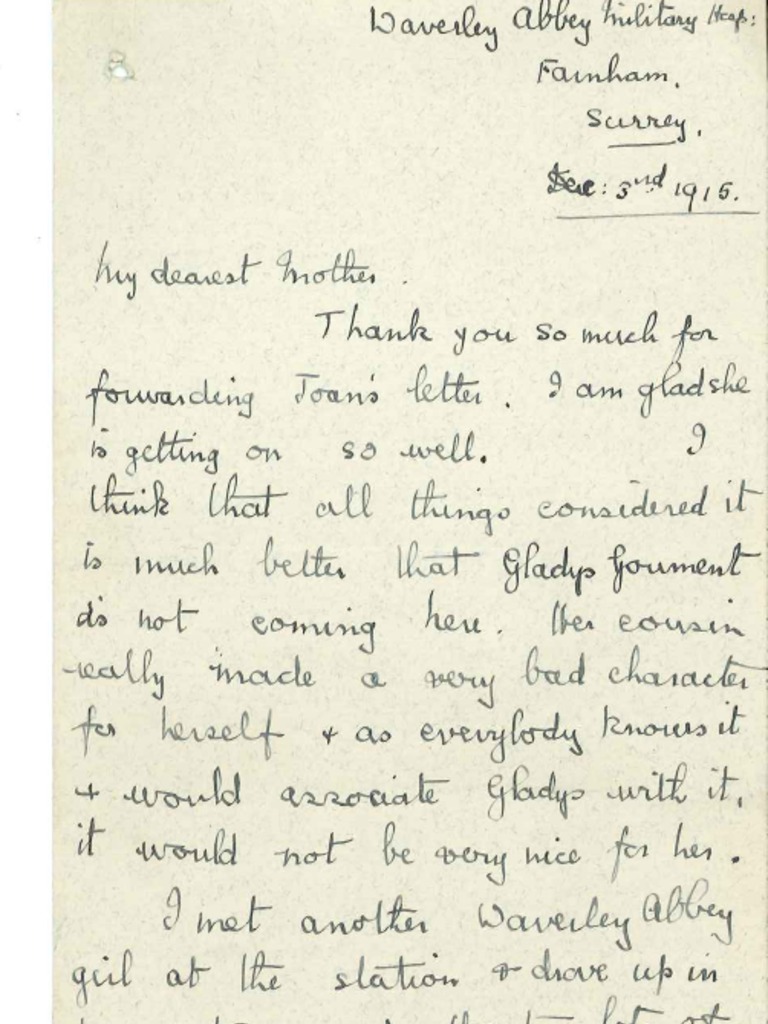 Waverley Abbey Military Hosp:
Farnham.
Surrey.
Dec: 3rd 1915.
My dearest Mother.
Thank you so much for
forwarding Joan's letter. I am glad she
is getting on so well. I
think that all things considered it
is much better that Gladys Gourment
is not coming here. Her cousin
really made a very bad character
for herself + as everybody knows it
+ would associate Gladys with it,
it would not be very nice for her.
I met another Waverley Abbey
girl at the station & drove up in